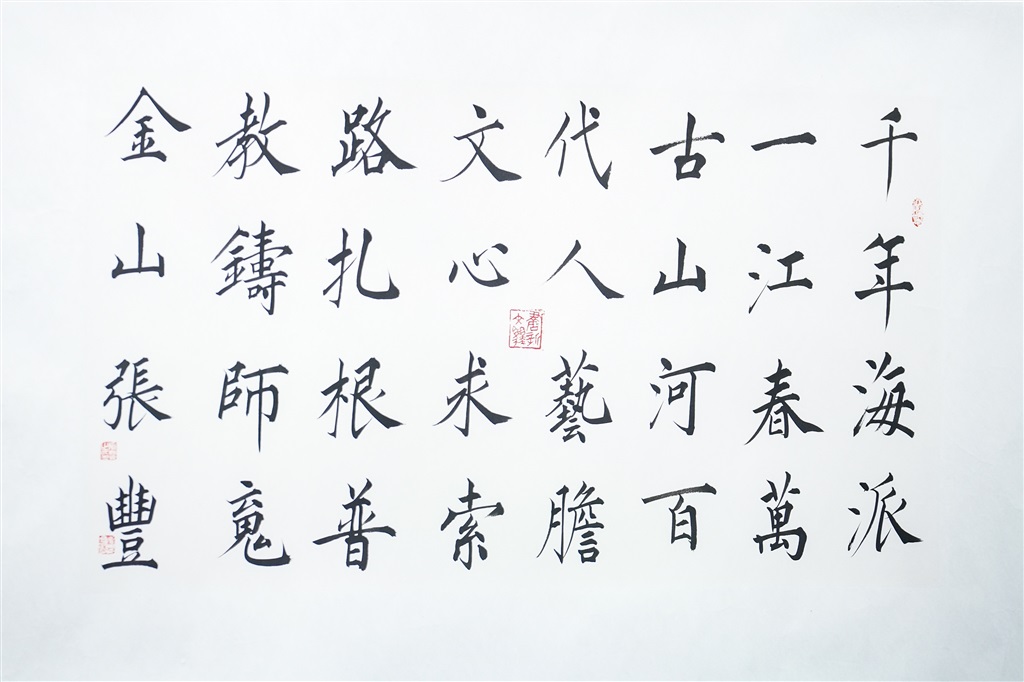 千年海派
一江春萬
古山河百
代人藝膽
文心求索
路扎根普
教鑄師魂
金山張豐